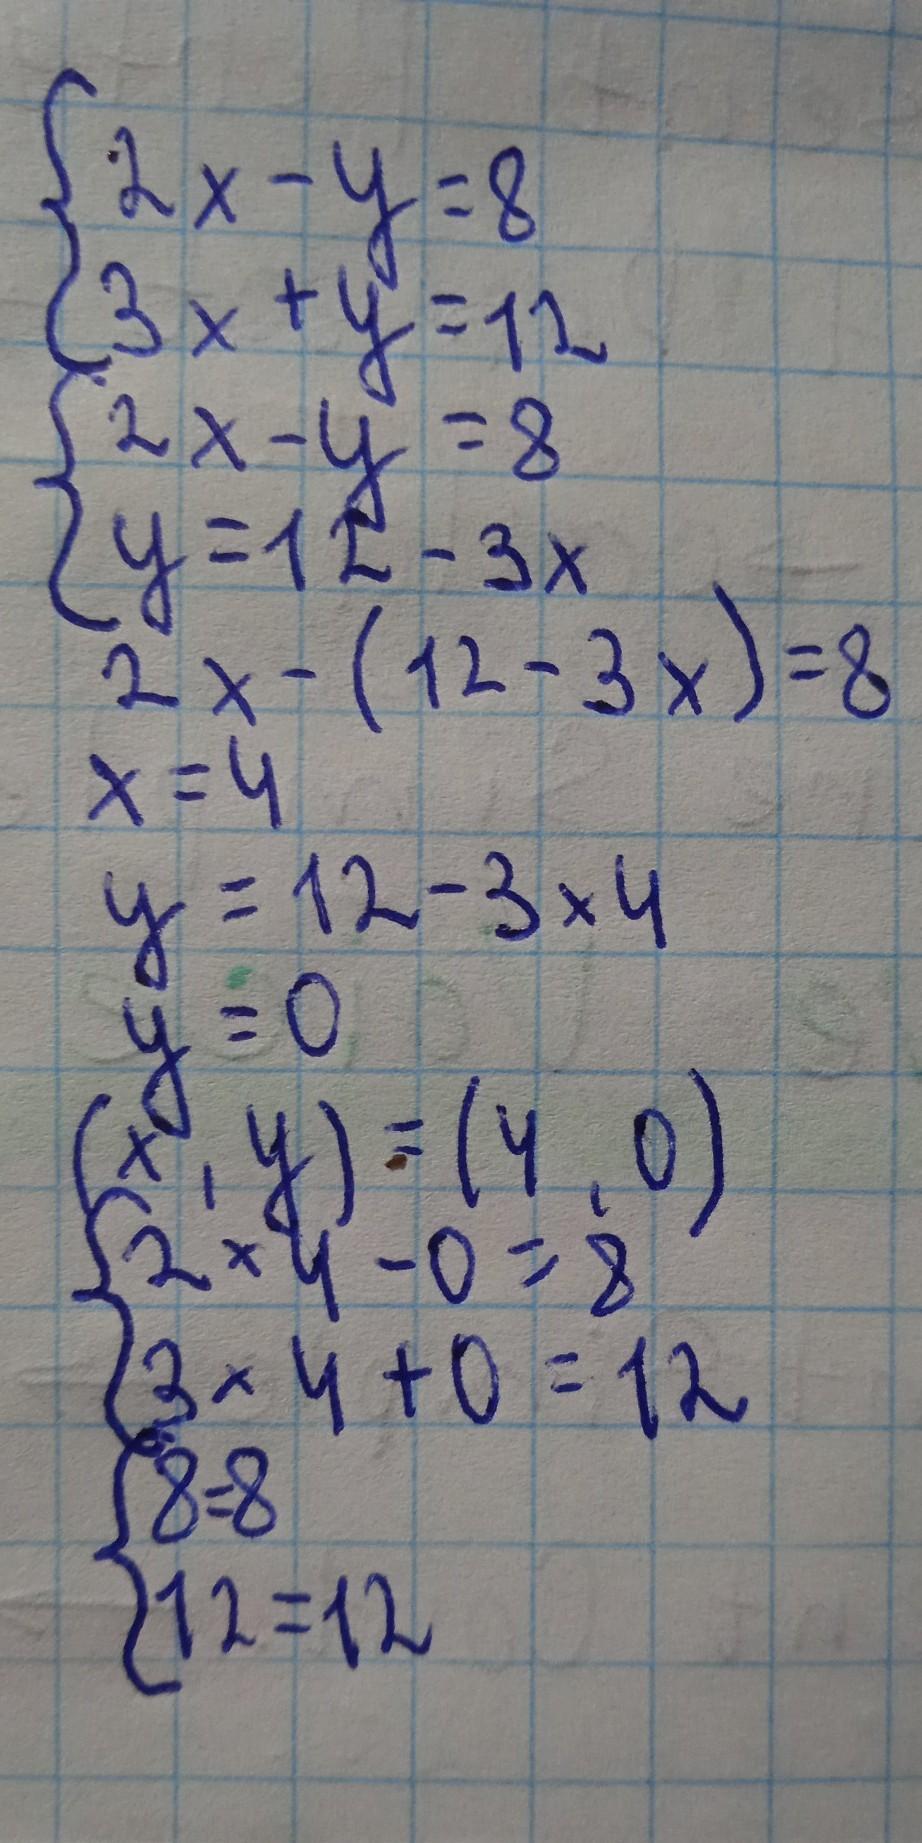 2x-y=8
3x+y=12
2x-y=8
y=12-3x
2x-(12-3x)=8
x=4
y=12-3×4
y=0
(x,y)=(4,0)
2×4-0=8
3×4+0=12
8=8
12=12